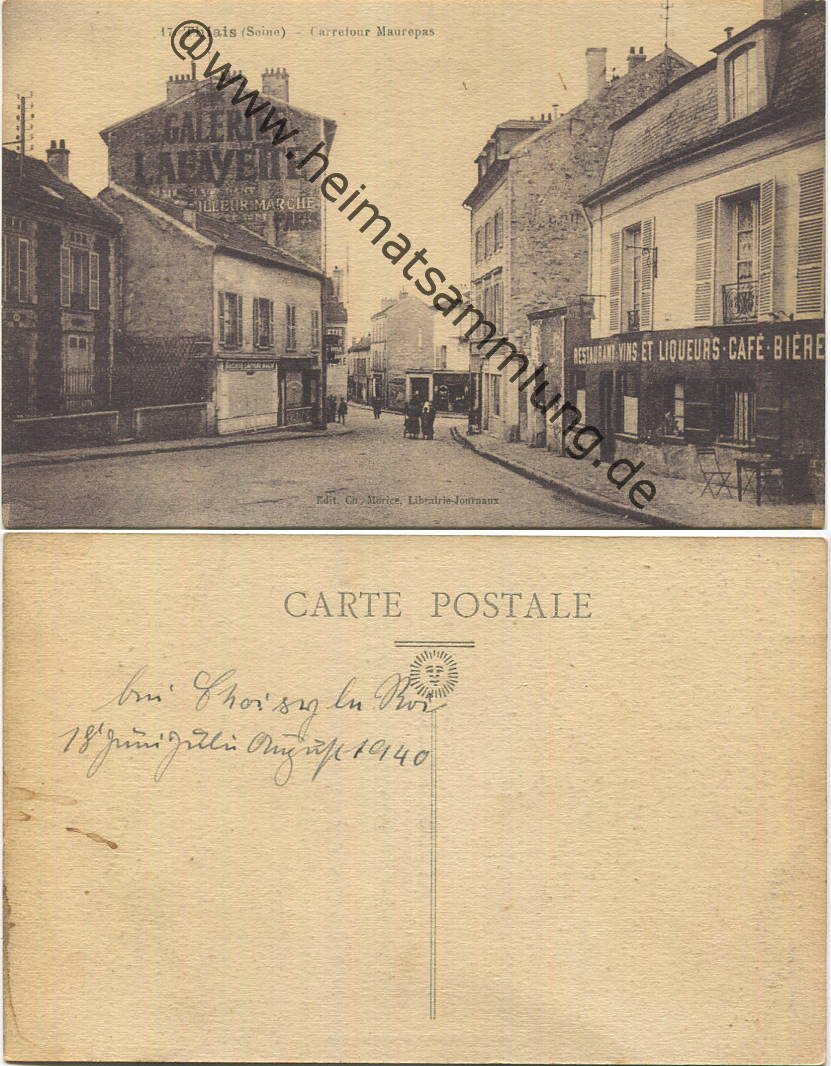 17 Thiais (Seine) - Carrefour Maurepas
GALERI
LAFAYETTE
MEILLEUR MARCHÉ
PARIS
RESTAURANT·VINS ET LIQUEURS·CAFÉ·BIÈRE
@www.heimatsammlung.de
Edit. Ch. Morice, Librairie-Journaux
CARTE POSTALE
bei Choisy le Roi
18 Juni Juli August 1940